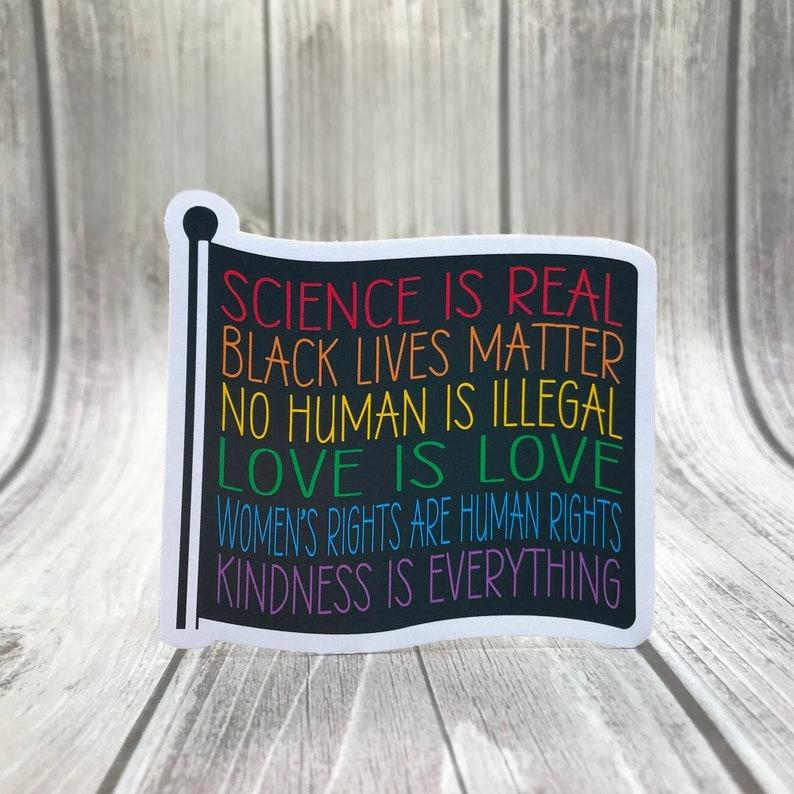 SCIENCE IS REAL
BLACK LIVES MATTER
NO HUMAN IS ILLEGAL
LOVE IS LOVE
WOMEN'S RIGHTS ARE HUMAN RIGHTS
KINDNESS IS EVERYTHING